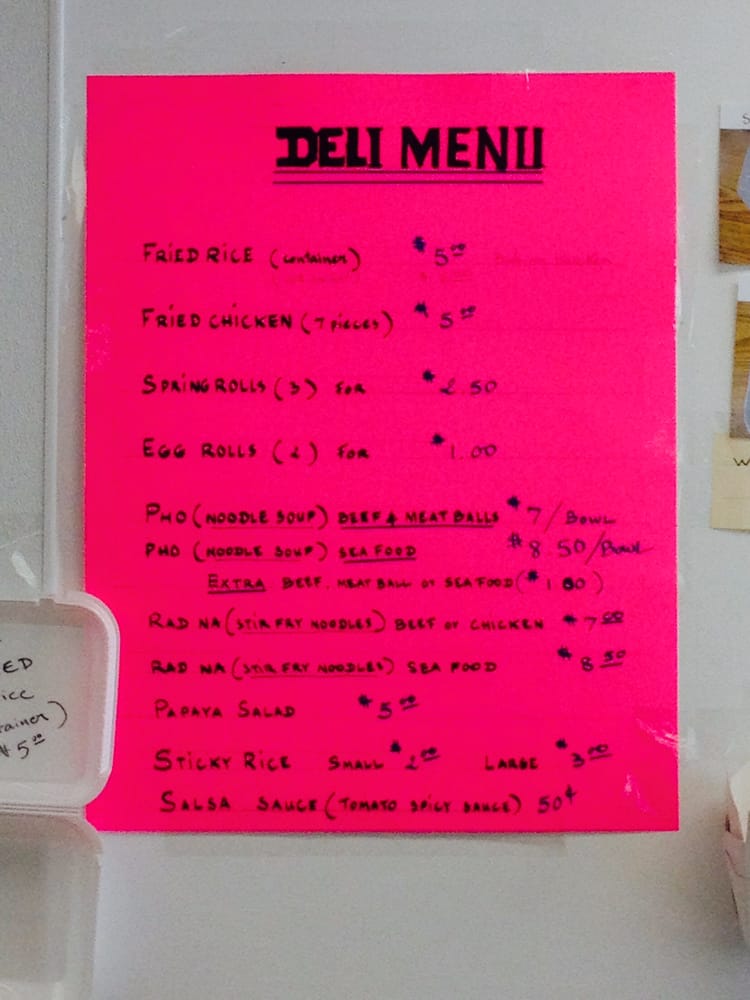 DELI MENU
FRIED RICE (container) $5.00
FRIED CHICKEN (7 pieces) $5.00
SPRING ROLLS (3) FOR $2.50
EGG ROLLS (2) FOR $1.00
PHO (NOODLE SOUP) BEEF & MEAT BALLS $7/BOWL
PHO (NOODLE SOUP) SEA FOOD $8.50/BOWL
EXTRA BEEF, MEAT BALL or SEA FOOD ($1.00)
RAD NA (STIR FRY NOODLES) BEEF or CHICKEN $7.00
RAD NA (STIR FRY NOODLES) SEA FOOD $8.50
PAPAYA SALAD $5.00
STICKY RICE SMALL $2.00 LARGE $3.00
SALSA SAUCE (TOMATO SPICY SAUCE) 50¢
$5.00